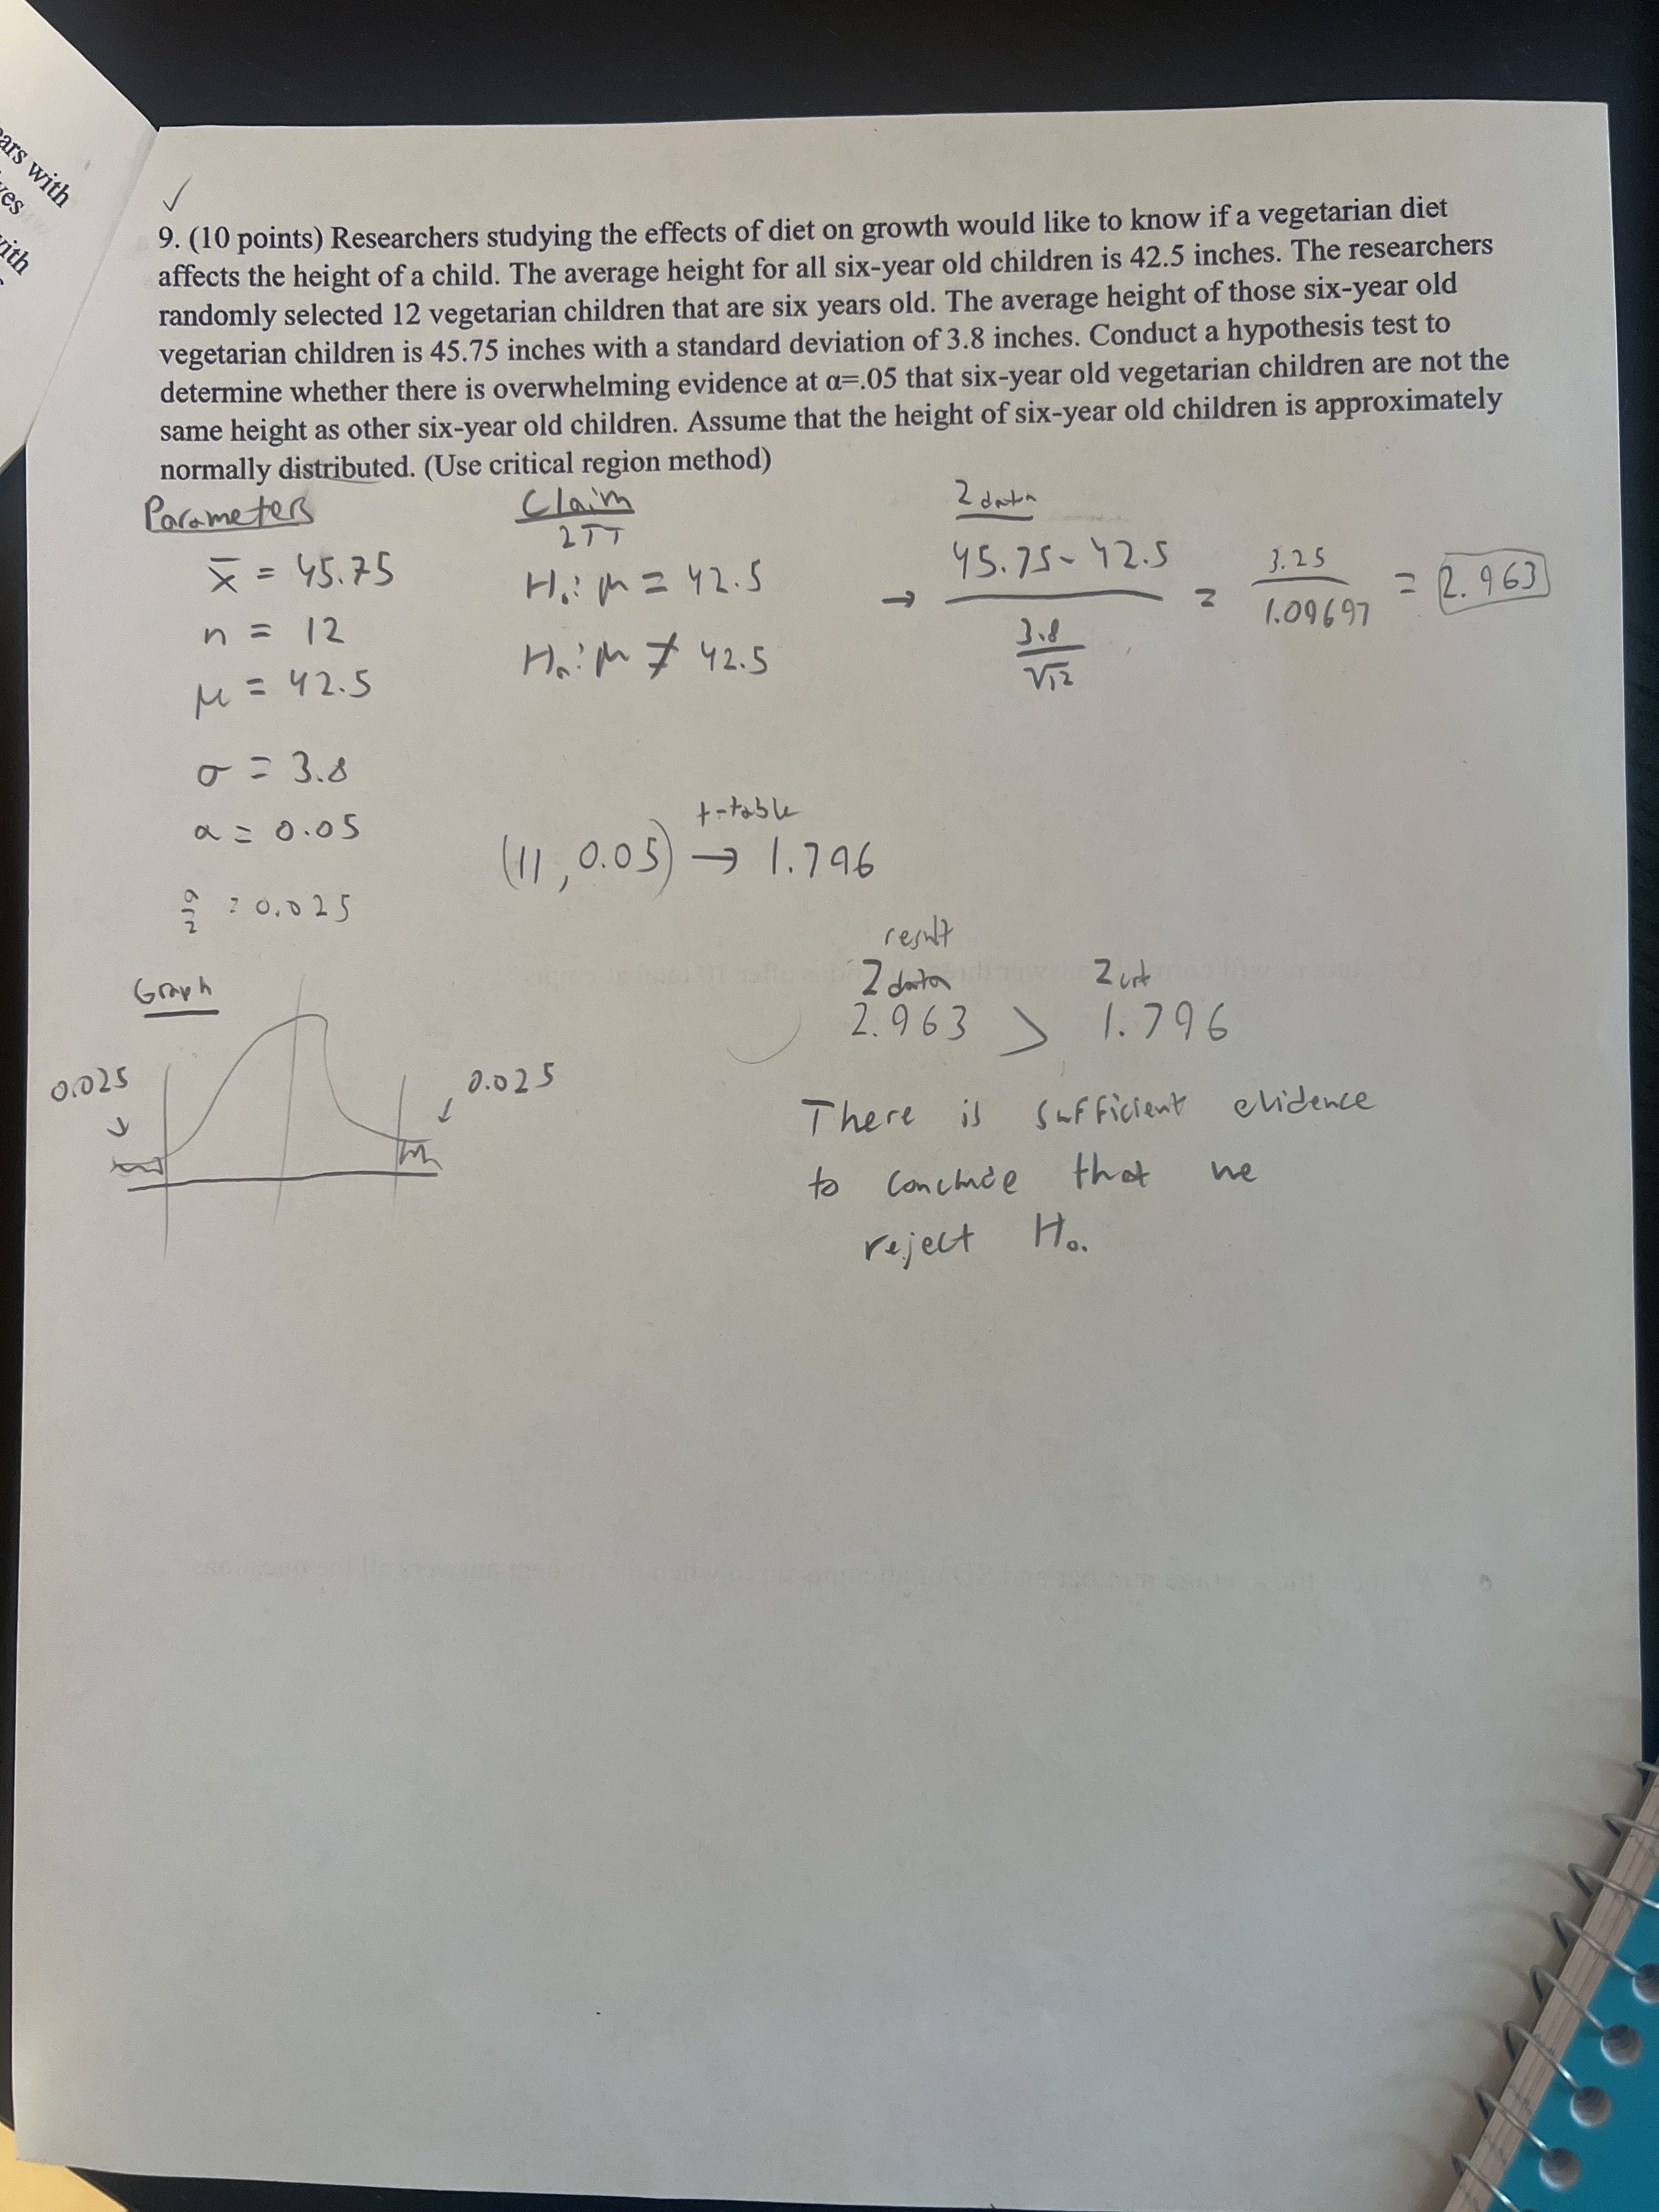 ars with
ves
with
✓
9. (10 points) Researchers studying the effects of diet on growth would like to know if a vegetarian diet
affects the height of a child. The average height for all six-year old children is 42.5 inches. The researchers
randomly selected 12 vegetarian children that are six years old. The average height of those six-year old
vegetarian children is 45.75 inches with a standard deviation of 3.8 inches. Conduct a hypothesis test to
determine whether there is overwhelming evidence at α=.05 that six-year old vegetarian children are not the
same height as other six-year old children. Assume that the height of six-year old children is approximately
normally distributed. (Use critical region method)
Parameters
x̄ = 45.75
n = 12
μ = 42.5
σ = 3.8
α = 0.05
α/2 = 0.025
Claim
2TT
H₀: μ = 42.5
Hₐ: μ ≠ 42.5
Z data
→ (45.75 - 42.5) / (3.8/√12) = 3.25/1.09697 = 2.963
(11, 0.05) t-table → 1.796
Graph
0.025 0.025
result
Z data Z crit
2.963 > 1.796
There is sufficient evidence
to conclude that we
reject H₀.